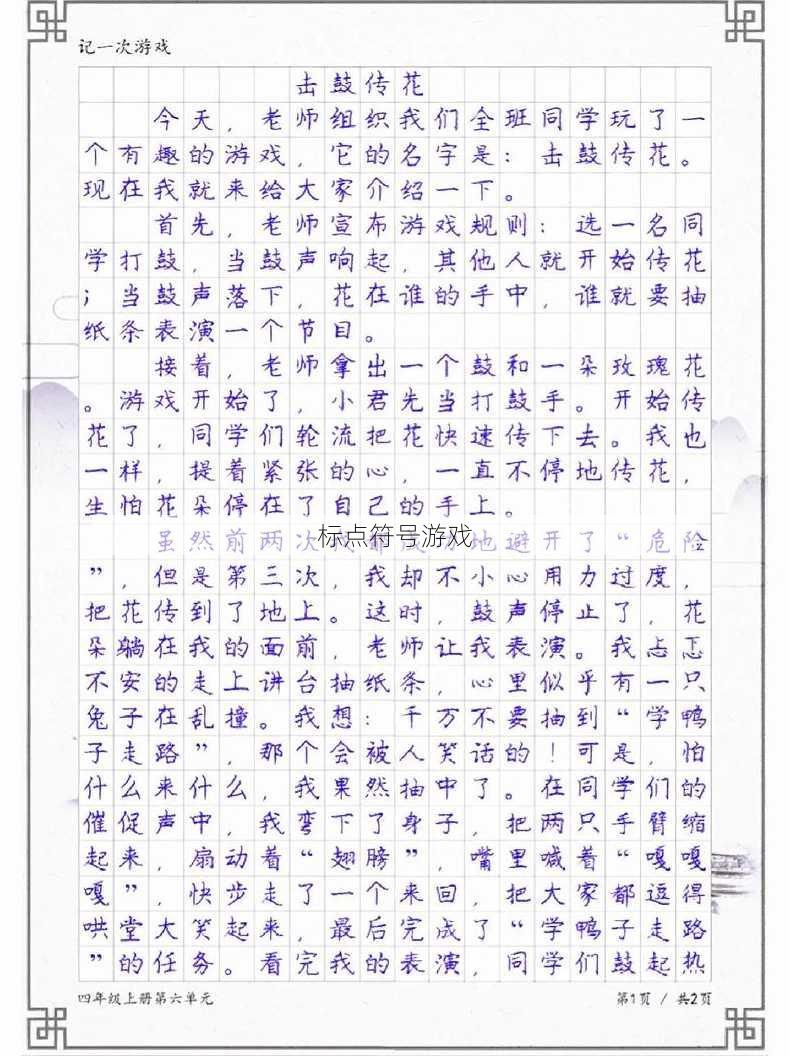 记一次游戏
击鼓传花
今天，老师组织我们全班同学玩了一
个有趣的游戏，它的名字是：击鼓传花。
现在我就来给大家介绍一下。
首先，老师宣布游戏规则：选一名同
学打鼓，当鼓声响起，其他人就开始传花
；当鼓声落下，花在谁的手中，谁就要抽
纸条表演一个节目。
接着，老师拿出一个鼓和一朵玫瑰花
。游戏开始了，小君先当打鼓手。开始传
花了，同学们轮流把花快速传下去。我也
一样，提着紧张的心，一直不停地传花，
生怕花朵停在了自己的手上。
虽然前两次地避开了“危险
标点符号游戏
”，但是第三次，我却不小心用力过度，
把花传到了地上。这时，鼓声停止了，花
朵躺在我的面前，老师让我表演。我忐忑
不安的走上讲台抽纸条，心里似乎有一只
兔子在乱撞。我想：千万不要抽到“学鸭
子走路”，那个会被人笑话的！可是，怕
什么来什么，我果然抽中了。在同学们的
催促声中，我弯下了身子，把两只手臂缩
起来，扇动着“翅膀”，嘴里喊着“嘎嘎
嘎”，快步走了一个来回，把大家都逗得
哄堂大笑起来，最后完成了“学鸭子走路
”的任务。看完我的表演，同学们鼓起热
四年级上册第六单元
第1页 / 共2页